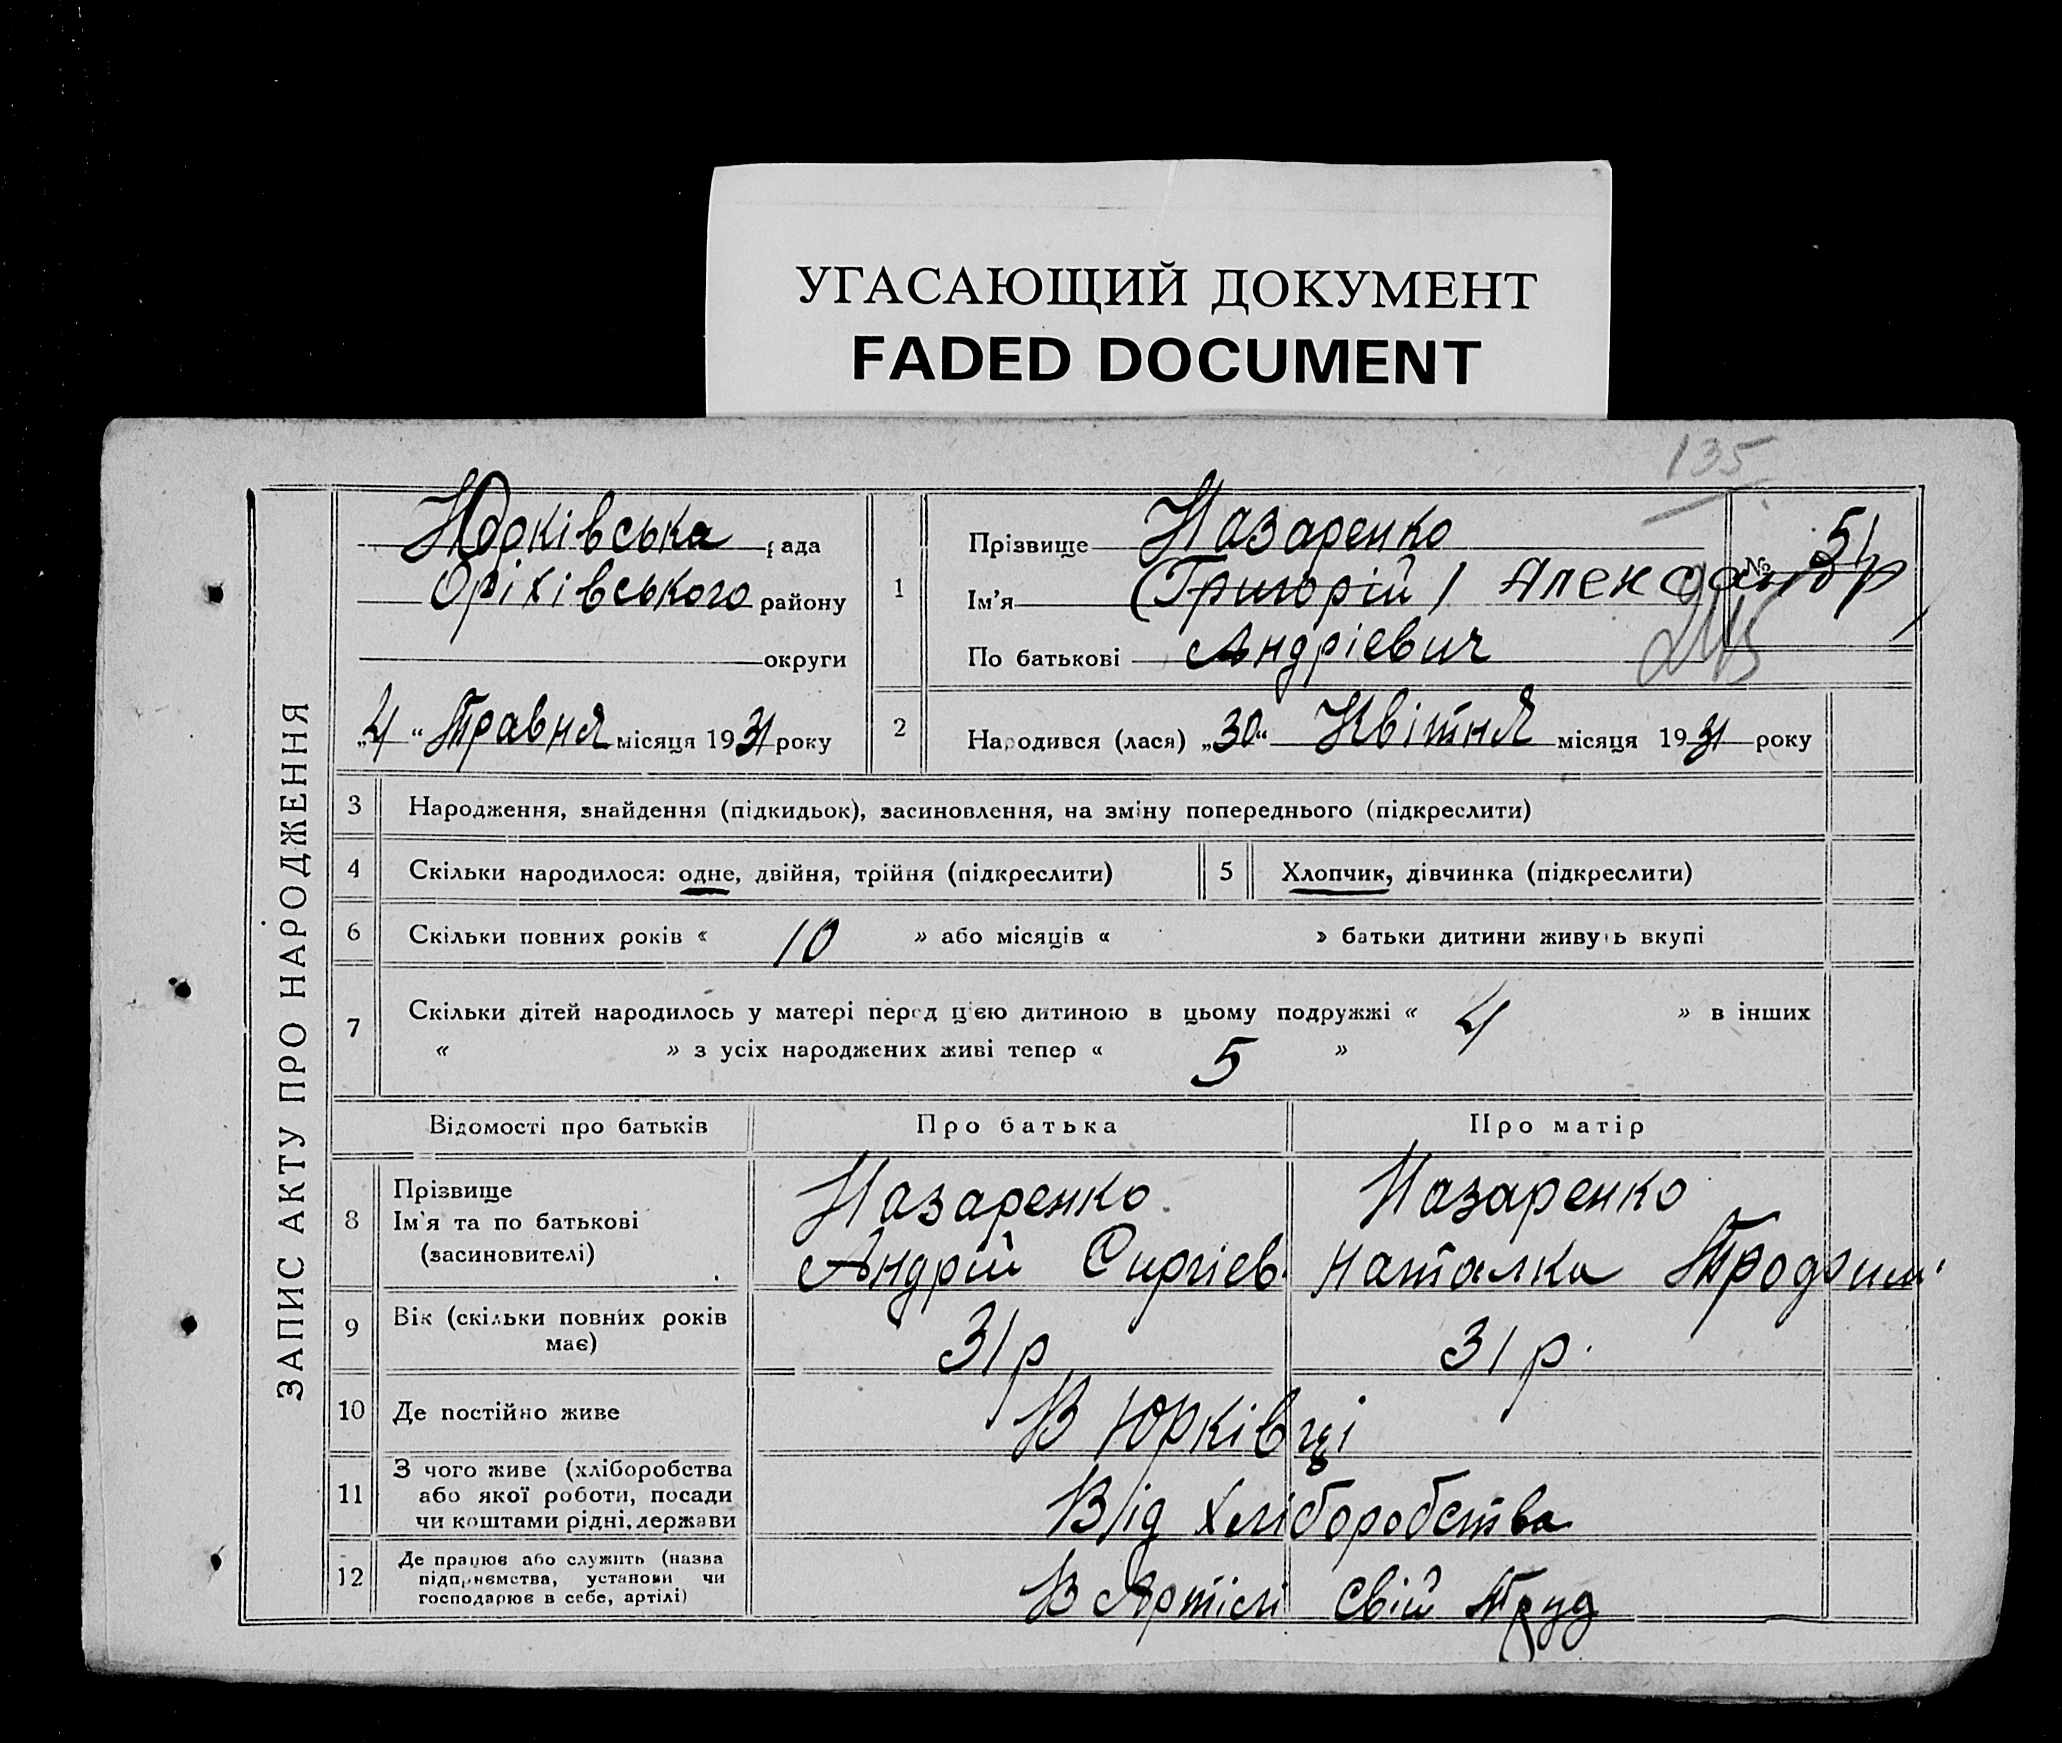 УГАСАЮЩИЙ ДОКУМЕНТ
FADED DOCUMENT
135
ЗАПИС АКТУ ПРО НАРОДЖЕННЯ
Юрківська рада
Оріхівського району
округи
„4“ Травня місяця 1931 року
1
Прізвище Назаренко
Ім'я (Григорій) Александр
По батькові Андрієвич
№ 54
2
Народився (лася) „30“ Квітня місяця 1931 року
3 Народження, знайдення (підкидьок), засиновлення, на зміну попереднього (підкреслити)
4 Скільки народилося: одне, двійня, трійня (підкреслити)
5 Хлопчик, дівчинка (підкреслити)
6 Скільки повних років « 10 » або місяців « » батьки дитини живуть вкупі
7 Скільки дітей народилось у матері перед цією дитиною в цьому подружжі « 4 » в інших
« » з усіх народжених живі тепер « 5 »
Відомості про батьків Про батька Про матір
8 Прізвище
Ім'я та по батькові
(засиновителі)
Назаренко
Андрій Сиргієв.
Назаренко
Наталка
9 Вік (скільки повних років
має)
31 р 31 р.
10 Де постійно живе В Юрківці
11 З чого живе (хліборобства
або якої роботи, посади
чи коштами рідні, держави
Від хліборобства
12 Де працює або служить (назва
підприємства, установи чи
господарює в себе, артілі)
В Артілі Свій Труд